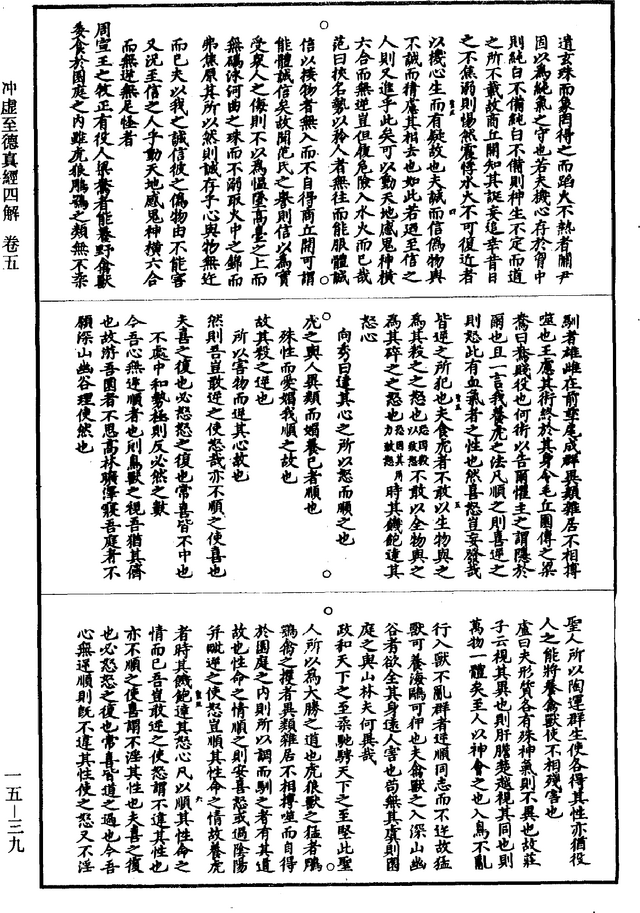 冲虛至德真經四解 卷五
一五—三九
遺玄珠而象罔得之而蹈火不熱者關尹
因以為純氣之守也若夫機心存於胷中
則純白不備純白不備則神生不定而道
之所不載故商丘開知其誕妄追幸昔日
之不焦溺則惕然震悸水火不可復近者
以機心生而有疑故也夫誠而信偽物與
不誠而情慮其相去也如此若迺至信之
人則又進乎此矣可以動天地感鬼神橫
六合而無逆豈但履危險入水火而已哉
范曰挾名勢以矜人者無往而能服體誠
信以接物者無入而不自得商丘開可謂
能體誠信矣故聞范氏之譽則信以為實
受衆人之侮則不以為慍墜高臺之上而
無䃣泳河曲之珠而不溺取火中之錦而
弗焦原其所以然則誠存乎心與物無迕
而已夫以我之誠信彼之偽物由不能害
又況至信之人乎動天地感鬼神橫六合
而無逆無足怪者
周宣王之牧正有役人梁鴦者能養野禽獸
委食於園庭之內雖虎狼鵰鶚之類無不柔
馴者雄雌在前孳尾成群異類雜居不相搏
噬也王慮其術終於其身令毛丘園傳之梁
鴦曰鴦賤役也何術以告爾懼王之謂隱於
爾也且一言我養虎之法凡順之則喜逆之
則怒此有血氣者之性也然喜怒豈妄發哉
皆逆之所犯也夫食虎者不敢以生物與之
為其殺之之怒也恐因殺以致怒不敢以全物與之
為其碎之之怒也恐因其用力致怒時其饑飽達其
怒心
向秀曰達其心之所以怒而順之也
虎之與人異類而媚養己者順也
殊性而愛媚我順之故也
故其殺之逆也
所以害物而逆其心故也
然則吾豈敢逆之使怒哉亦不順之使喜也
夫喜之復也必怒怒之復也常喜皆不中也
不處中和勢極則反必然之數
今吾心無逆順者也則鳥獸之視吾猶其儕
也故游吾園者不思高林曠澤寢吾庭者不
願深山幽谷理使然也
聖人所以陶運群生使各得其性亦猶役
人之能將養禽獸使不相殘害也
盧曰夫形質各有殊神氣則不異也故莊
子云視其異也則肝膽楚越視其同也則
萬物一體矣至人以神會之也入鳥不亂
行入獸不亂群者逆順同志而不迕故猛
獸可養海鷗可狎也夫禽獸之入深山幽
谷者欲全其身遠人害也苟無其虞則園
庭之與山林夫何異哉
政和天下之至柔馳騁天下之至堅此聖
人所以為大勝之道也虎狼獸之猛者鵰
鶚禽之攫者異類雜居不相搏噬而自得
於園庭之內則所以調而馴之者有其道
故也性命之情順之則安喜怒或過陰陽
并毗逆之使怒豈順其性命之情故養虎
者時其饑飽達其怒心凡以順其性命之
情而已吾豈敢逆之使怒謂不違其性也
亦不順之使喜謂不淫其性也夫喜之復
也必怒怒之復也常喜皆道之過也今吾
心無逆順則既不違其性使之怒又不淫